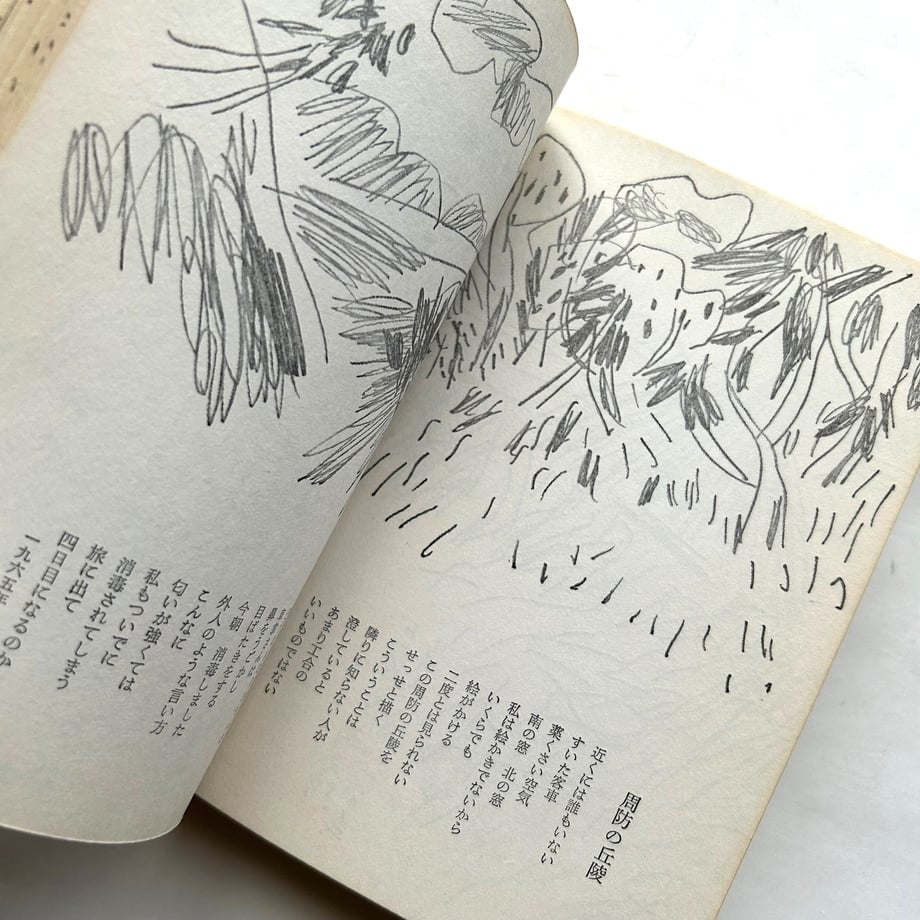 周防の丘陵
近くには誰もいない
すいた客車
薬くさい空気
南の窓　北の窓
私は絵かきでないから
いくらでも
絵がかける
二度とは見られない
この周防の丘陵を
せっせと描く
こういうことは
隣りに知らない人が
澄していると
あまり工合の
いいものではない
今朝　消毒しました
外人のような言い方
こんなに
匂いが強くては
私もついでに
消毒されてしまう
旅に出て
四日目になるのか
一九六五年